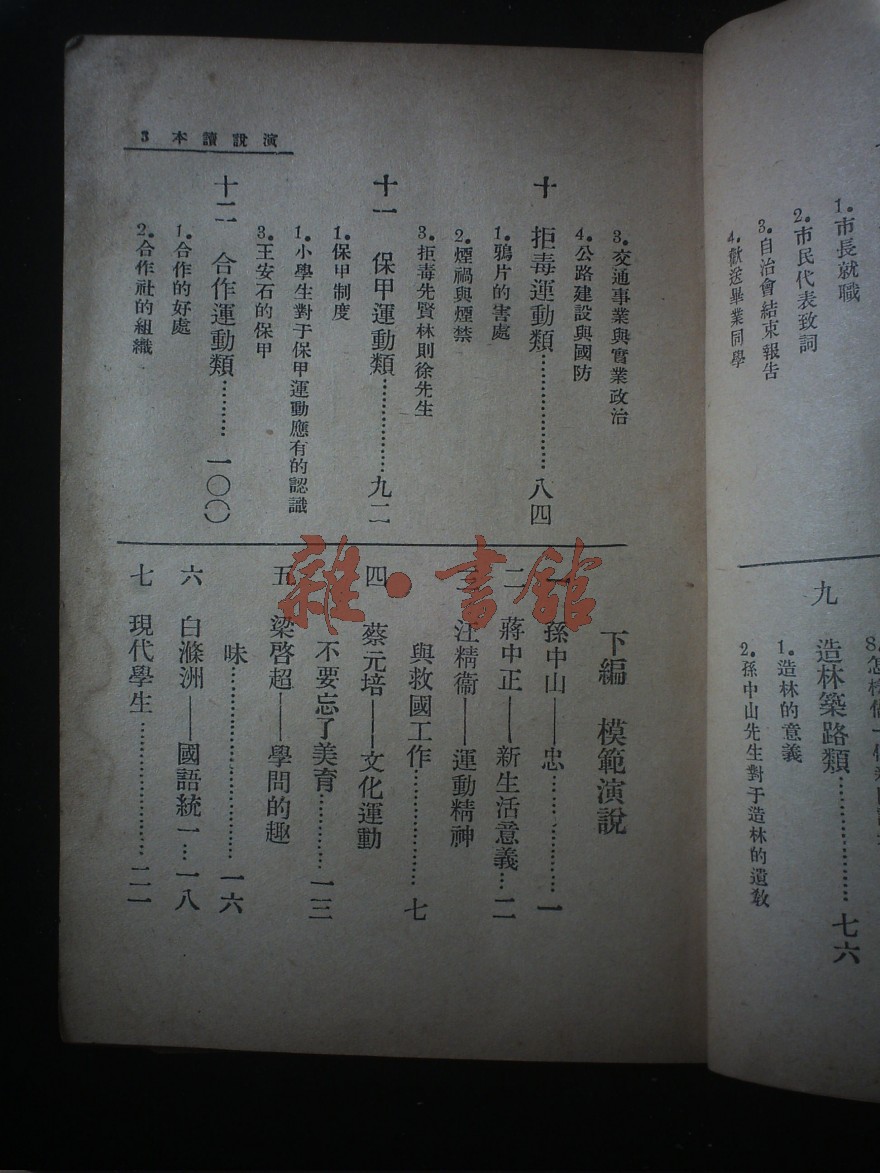 1.市長就職
2.市民代表致詞
3.自治會結束報告
4.歡送畢業同學
九　造林築路類……………七六
1.造林的意義
2.孫中山先生對于造林的遺敎
演說讀本 3
3.交通事業與實業政治
4.公路建設與國防
十　拒毒運動類……………八四
1.鴉片的害處
2.煙禍與煙禁
3.拒毒先賢林則徐先生
十一　保甲運動類…………九二
1.保甲制度
1.小學生對于保甲運動應有的認識
3.王安石的保甲
十二　合作運動類………一〇〇
1.合作的好處
2.合作社的組織
下編　模範演說
一　孫中山——忠……………一
二　蔣中正——新生活意義…二
三　汪精衞——運動精神
與救國工作……………七
四　蔡元培——文化運動
不要忘了美育…………一三
五　梁啓超——學問的趣
味……………………一六
六　白滌洲——國語統一…一八
七　現代學生………………二一
雜·書館